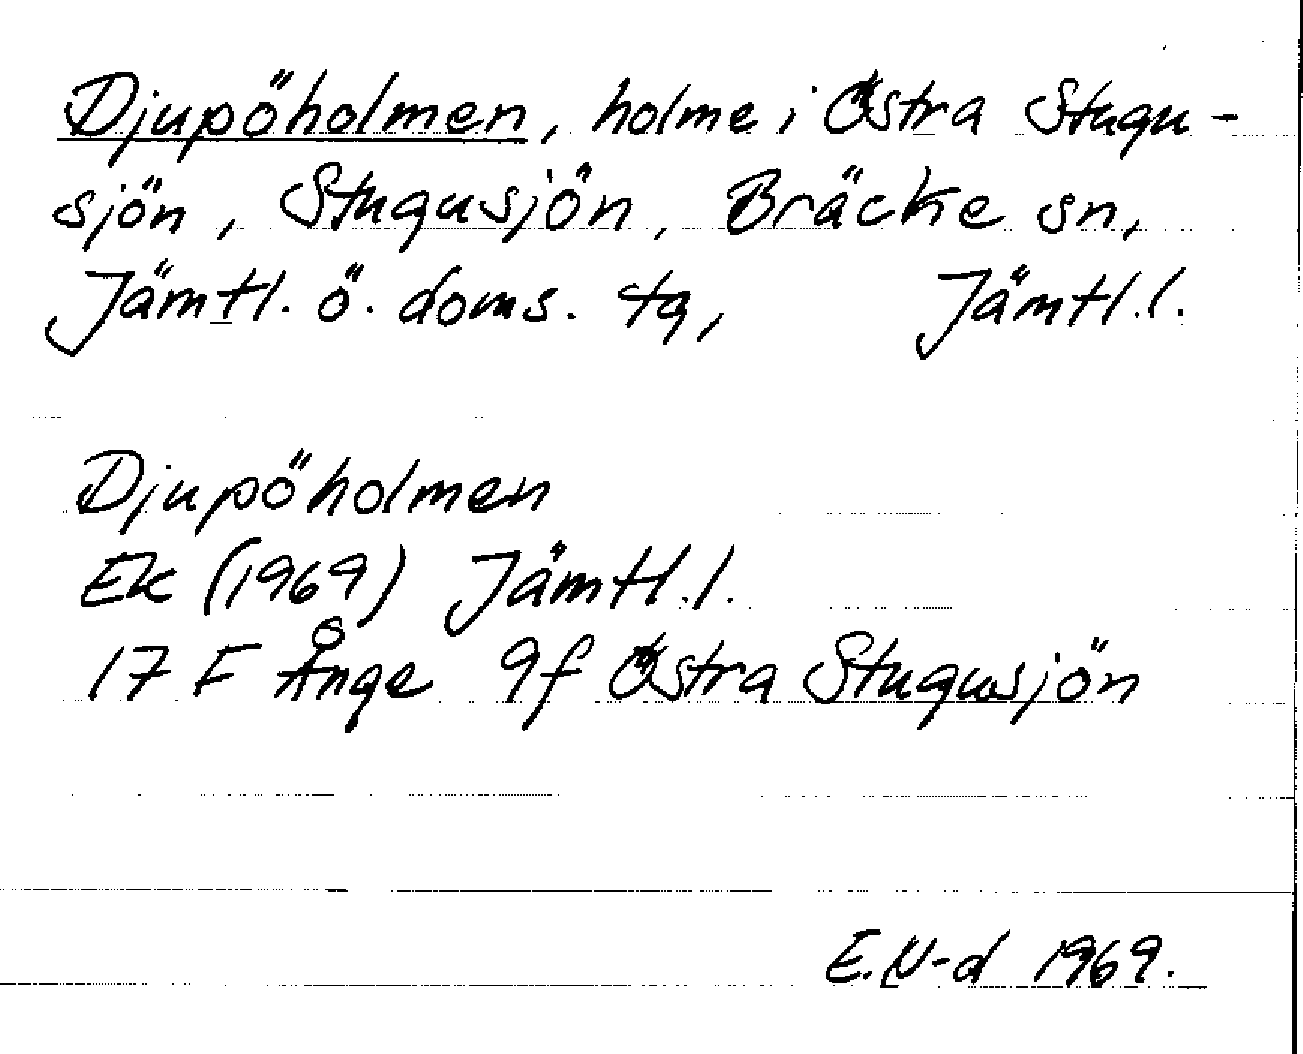 Djupöholmen, holme i Östra Stugu-
sjön, Stugusjön, Bräcke sn,
Jämtl. ö. doms. tg, Jämtl.l.
Djupöholmen
Ek (1969) Jämtl.l.
17 F Ånge 9f Östra Stugusjön
E.N-d 1969.